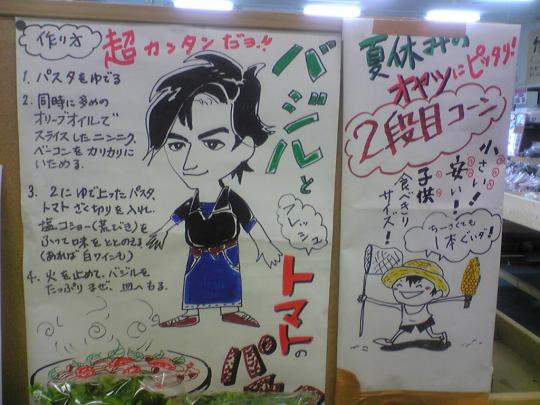 作り方
超カンタンだヨ!!
1. パスタをゆでる
2. 同時に多めの
オリーブオイルで
スライスしたニンニク、
ベーコンをカリカリに
いためる。
3. 2にゆで上ったパスタ、
トマトざく切りを入れ、
塩コショー(荒びき)を
ふって味をととのえる
(あれば白ワインも)
4. 火を止めて、バジルを
たっぷりまぜ、皿へもる。
バジルと
フレッシュ
トマトの
パスタ
夏休みの
オヤツにピッタリ!
2段目コーン
小さい!
安い!
子供
食べきり
サイズ!
ちーさくても
1本だいが!